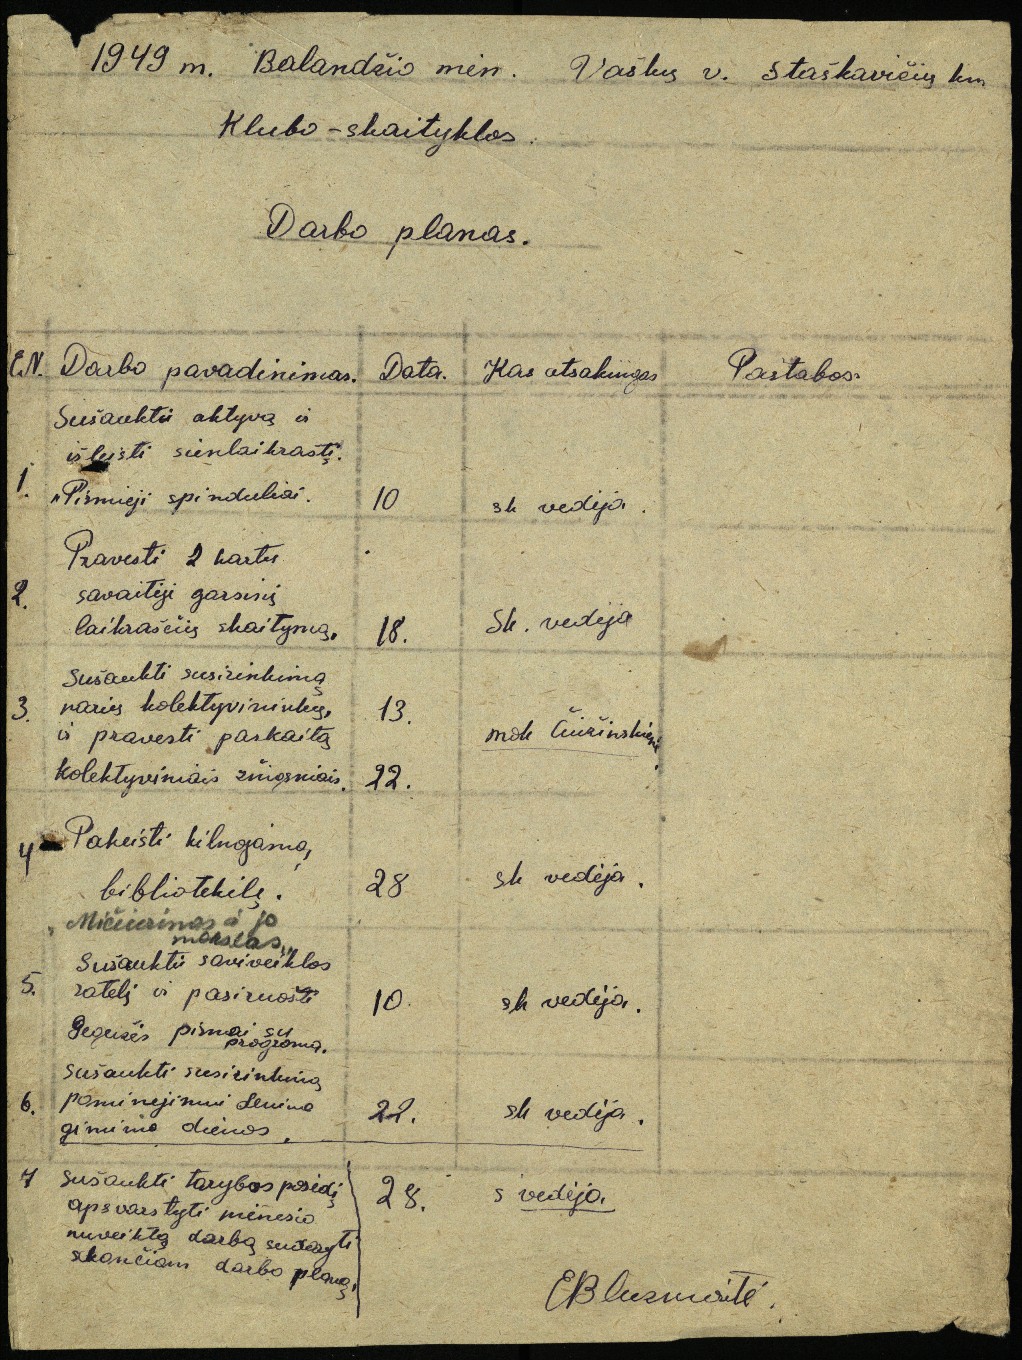 1949 m. Balandžio mėn. Vaškų v. Staškavičių km
Klubo-skaityklos.
Darbo planas.
E.N. Darbo pavadinimas. Data. Kas atsakingas Pastabos.
Sušaukti aktyvą ir
išleisti sienlaikraštį.
1. "Pirmieji spinduliai. 10 sk vedėja.
Pravesti 2 kartu
2. savaitėje garsinį
laikraščių skaitymą. 18. Sk. vedėja
Sušaukti susirinkimą
3. narių kolektyvininkų, 13.
ir pravesti paskaitą mok Čiurinskienė.
kolektyviniais žingsniais. 22.
4 Pakeisti kilnojamą,
bibliotekėlę. 28 sk vedėja.
"Mičiurinas ir jo
mokslas"
Sušaukti saviveiklos
5. ratelį ir pasiruošti 10. sk vedėja.
Gegužės pirmai su
programa.
Sušaukti susirinkimą
6. paminėjimui Lenino 22. sk vedėja.
gimimo dienos.
7 Sušaukti tarybos posėdį 28. s vedėja.
apsvarstyti mėnesio
nuveiktą darbą sudaryti
sekančiam darbo planą.